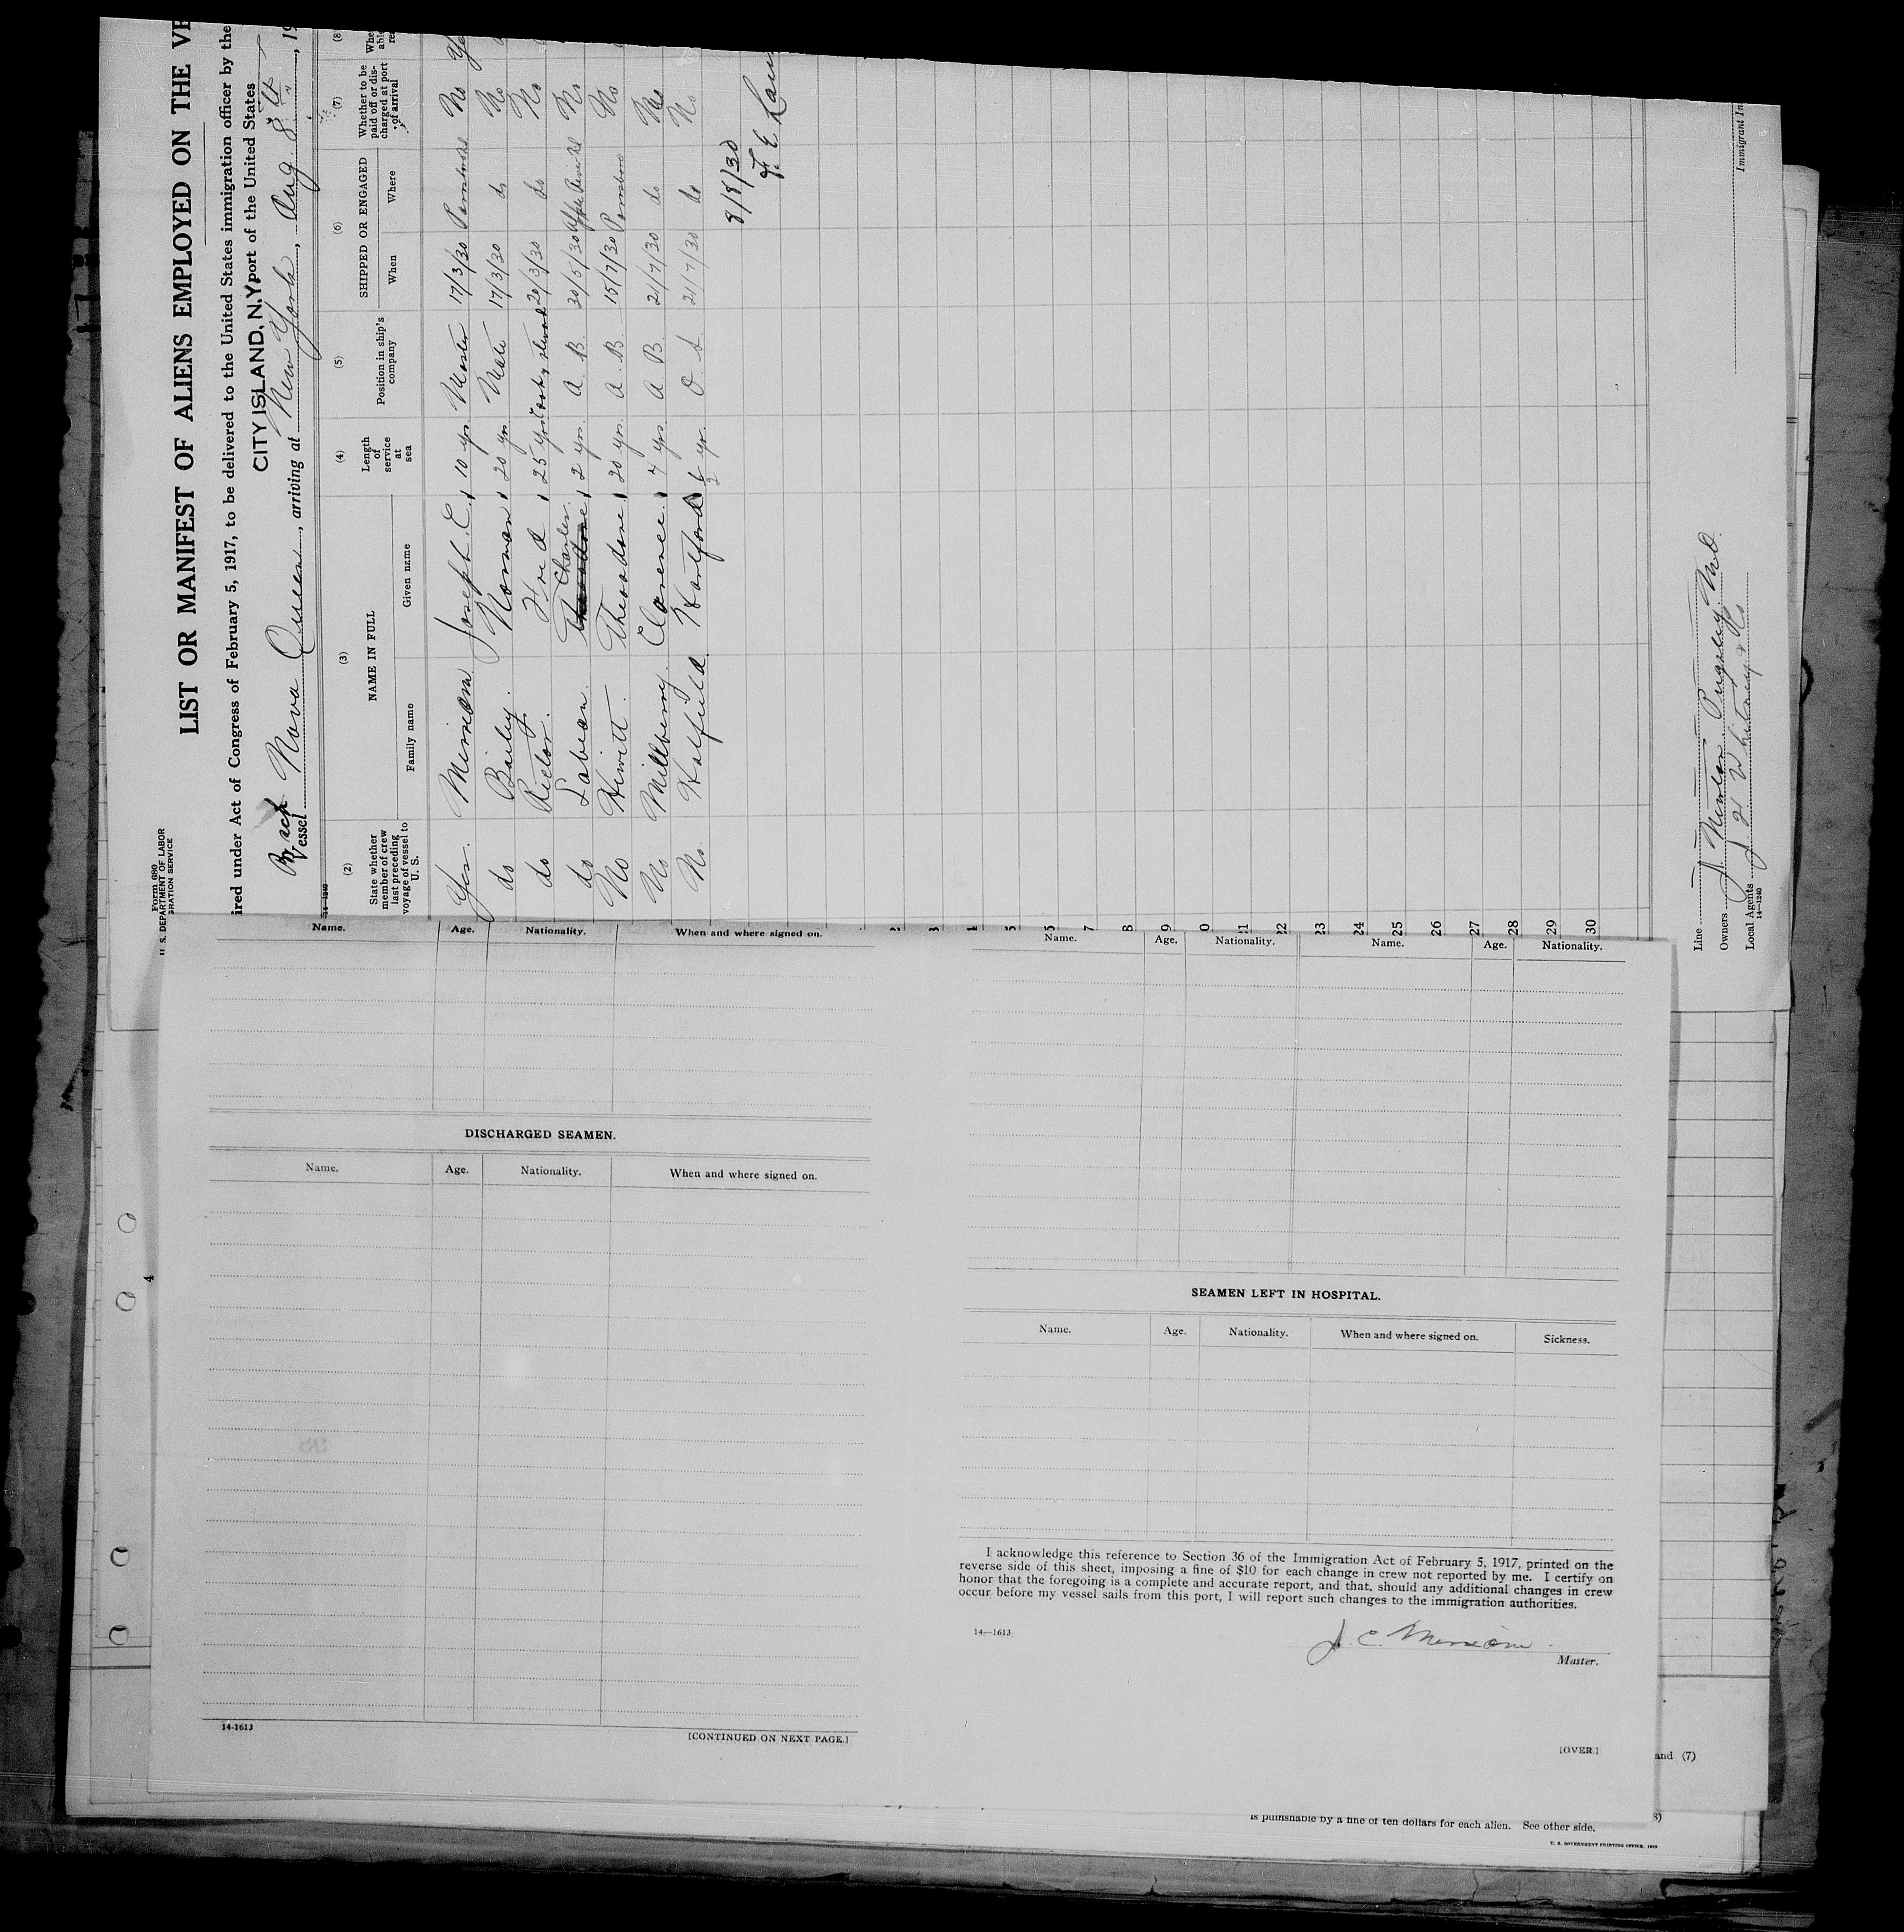 Form 680
U. S. DEPARTMENT OF LABOR
GRATION SERVICE
LIST OR MANIFEST OF ALIENS EMPLOYED ON THE VE
ired under Act of Congress of February 5, 1917, to be delivered to the United States immigration officer by the
CITY ISLAND, N.Y port of the United States
Br sch
Vessel Nova Queen, arriving at New York, Aug 8th, 19
14—1240
(2) (3) (4) (5) (6) (7) (8)
State whether member of crew last preceding voyage of vessel to U. S.
NAME IN FULL
Family name Given name
Length of service at sea
Position in ship's company
SHIPPED OR ENGAGED
When Where
Whether to be paid off or discharged at port of arrival
Yes. Merriam Joseph E. 10 yrs Master 17/3/30 No Ye
do Bailey. Norman 20 yrs Mate 17/3/30 do No
do Fred 25 yrs 20/3/30 do No
do Charles 2 yrs. A. B. 30/5/30 No
No Hewitt. Theodore 20 yrs. A. B. 15/7/30 No
No Millberry. Clarence. 7 yrs A B 21/7/30 do No
No. Hatfield Hartford yr. O S. 21/7/30 do No
8/8/30
F. E.
Immigrant In
Line
Owners J. Newton Pugsley
Local Agents
14—1240
7
8
9
0
21
22
23
24
25
26
27
28
29
30
Name. Age. Nationality. When and where signed on.
DISCHARGED SEAMEN.
Name. Age. Nationality. When and where signed on.
14-1613
[CONTINUED ON NEXT PAGE.]
Name. Age. Nationality. Name. Age. Nationality.
SEAMEN LEFT IN HOSPITAL.
Name. Age. Nationality. When and where signed on. Sickness.
I acknowledge this reference to Section 36 of the Immigration Act of February 5, 1917, printed on the
reverse side of this sheet, imposing a fine of $10 for each change in crew not reported by me. I certify on
honor that the foregoing is a complete and accurate report, and that, should any additional changes in crew
occur before my vessel sails from this port, I will report such changes to the immigration authorities.
14—1613
J. E. Merriam
Master.
[OVER.]
4
and (7)
8)
is punishable by a fine of ten dollars for each alien. See other side.
U. S. GOVERNMENT PRINTING OFFICE. 1929